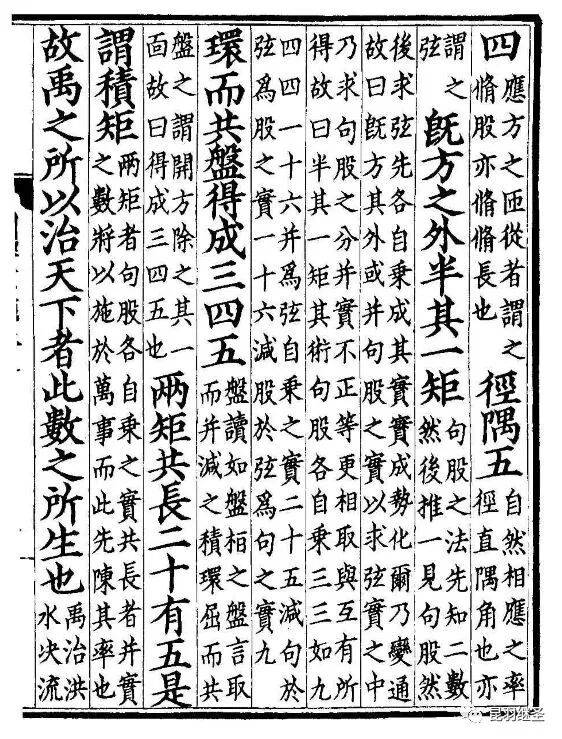 四應方之匝從者謂之脩股亦脩脩長也徑隅五自然相應之率徑直隅角也亦
謂之弦旣方之外半其一矩句股之法先知二數然後推一見句股然
後求弦先各自乘成其實實成勢化爾乃變通
故曰旣方其外或并句股之實以求弦實之中
乃求句股之分并實不正等更相取與互有所
得故曰半其一矩其術句股各自乘三三如九
四四一十六并爲弦自乘之實二十五減句於
弦爲股之實一十六減股於弦爲句之實九
環而共盤得成三四五盤讀如盤桓之盤言取而并減之積環屈而共
盤之謂開方除之其一面故曰得成三四五也兩矩共長二十有五是
謂積矩兩矩者句股各自乘之實共長者并實之數將以施於萬事而此先陳其率也
故禹之所以治天下者此數之所生也禹治洪水决流
昆羽继圣